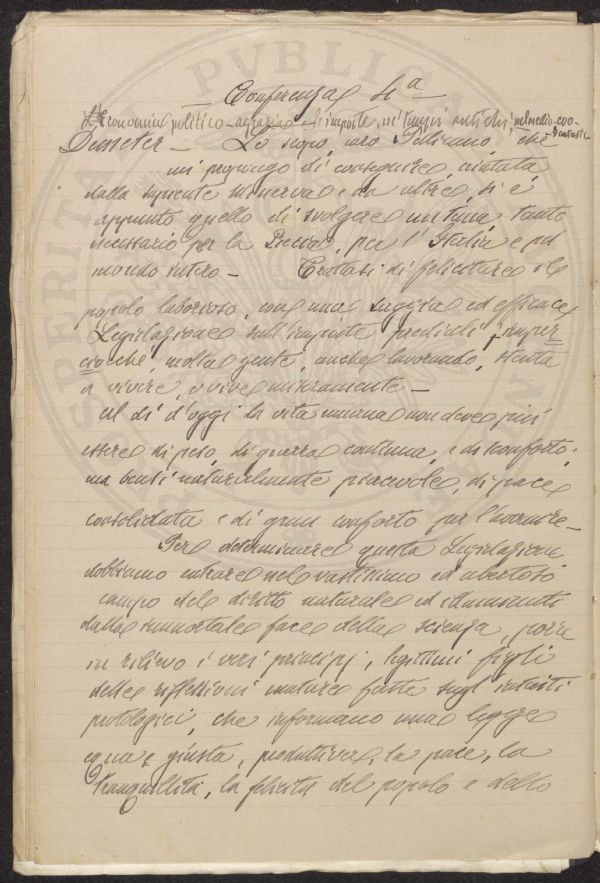 Conferenza 4ª
L'Economia politico-agraria e le imposte, nei tempi antichi, nel medio-evo
Demeter — Lo scopo, caro che
mi propongo di conseguire, aiutata
dalla sapiente Minerva e da altre, si è
appunto quello di svolgere un tema tanto
necessario per la Grecia, per l'Italia e pel
mondo intero — Trattasi di felicitare il
popolo laborioso, con una saggia ed efficace
Legislazione sull'imposte prediali, imper
ciocchè, molta gente, anche lavorando, stenta
a vivere, o vive miseramente —
Al dì d'oggi la vita umana non deve più
essere di peso, di guerra continua, e di sconforto;
ma bensì naturalmente piacevole, di pace
consolidata e di gran conforto per l'avvenire —
Per determinare questa Legislazione
dobbiamo entrare nel vastissimo ed ubertoso
campo del diritto naturale ed illuminati
dalla immortale face della scienza, porre
in rilievo i veri principj, legittimi figli
delle riflessioni mature fatte sugl'intuiti
protologici, che informano una legge
equa e giusta, produttiva, la pace, la
tranquillità, la felicità del popolo e dello